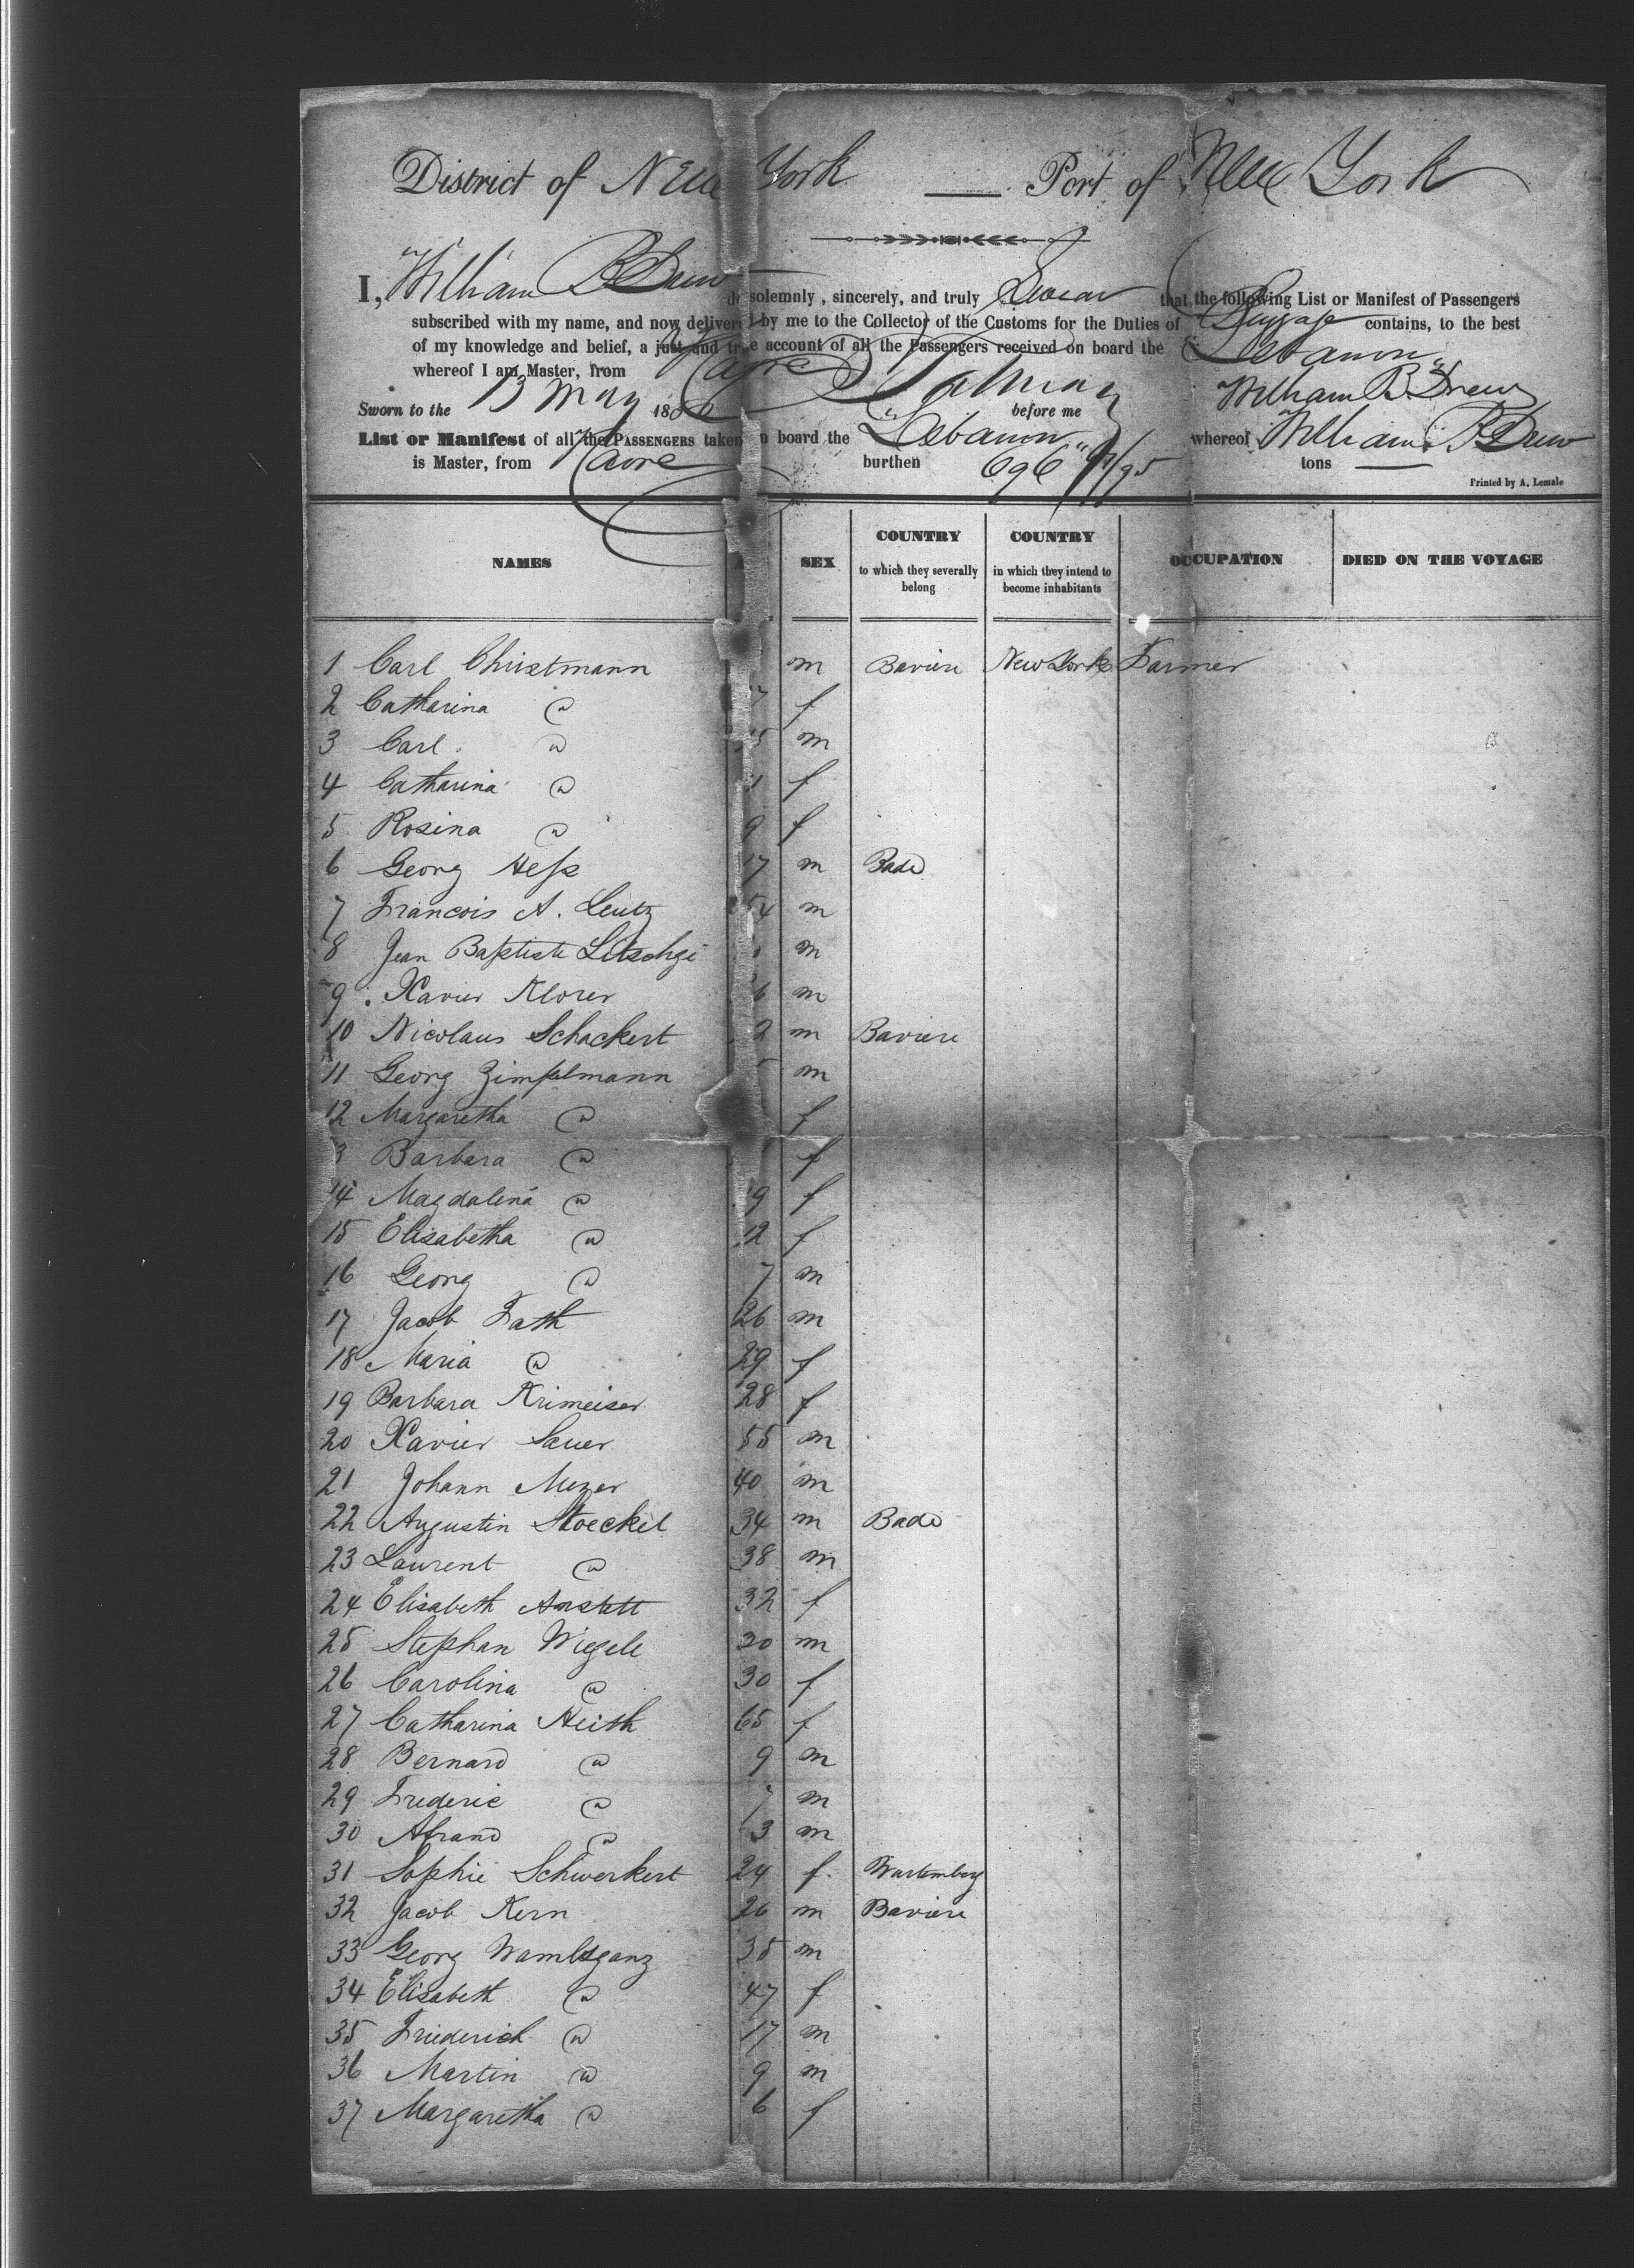 District of New York Port of New York
I, William B Drew do solemnly, sincerely, and truly Swear that the following List or Manifest of Passengers
subscribed with my name, and now delivered by me to the Collector of the Customs for the Duties of contains, to the best
of my knowledge and belief, a just and true account of all the Passengers received on board the Lebanon
whereof I am Master, from Havre William B. Drew
Sworn to the 13 May 18 before me
List or Manifest of all the PASSENGERS taken on board the Lebanon whereof William B Drew
is Master, from Havre burthen 696 /95 tons
Printed by A. Lemale
NAMES A SEX COUNTRY to which they severally belong COUNTRY in which they intend to become inhabitants OCCUPATION DIED ON THE VOYAGE
1 Carl Christmann m Baviere New York Farmer
2 Catharina @ 7 f
3 Carl @ 5 m
4 Catharina @ 1 f
5 Rosina @ 9 f
6 Georg Heſs 17 m Bade
7 Francois A. Leutz 54 m
8 Jean Baptiste Litschgi m
9 Xavier Klorer 6 m
10 Nicolaus Schackert 2 m Baviere
11 Georg Zimpelmann m
12 Margaretha @ f
3 Barbara @ f
14 Magdalena @ 9 f
15 Elisabetha @ 12 f
16 Georg @ 7 m
17 Jacob Fath 26 m
18 Maria @ 29 f
19 Barbara Krimeiser 28 f
20 Xavier Sauer 55 m
21 Johann Mezer 40 m
22 Augustin Stoeckel 34 m Bade
23 Laurent @ 38 m
24 Elisabeth Amstett 32 f
25 Stephan Wiegele 30 m
26 Carolina @ 30 f
27 Catharina Heith 65 f
28 Bernard @ 9 m
29 Frederic @ 7 m
30 @ 3 m
31 Sophie Schwerkert 24 f. Wurtemberg
32 Jacob Kern 26 m Baviere
33 Georg Wambsganz 35 m
34 Elisabeth @ 47 f
35 Friederich @ 17 m
36 Martin @ 9 m
37 Margaretha @ 6 f